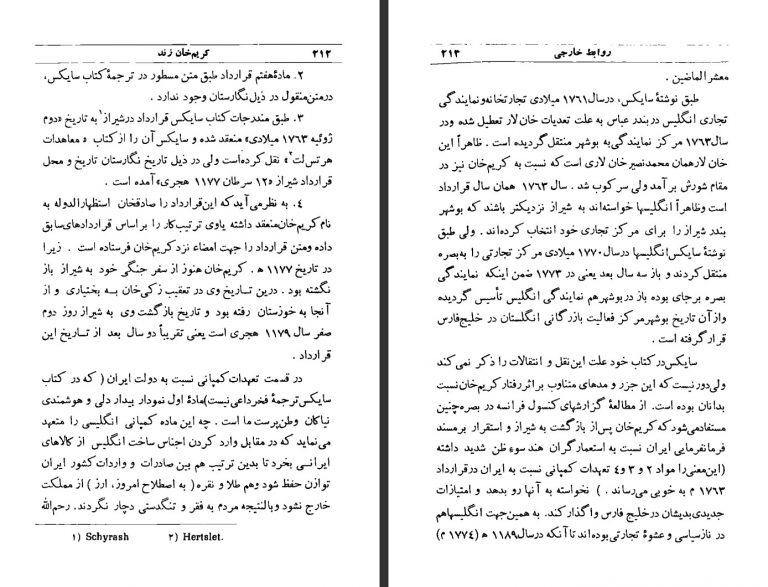 ۲۱۲ کریم‌خان زند
۲. مادهٔ‌هفتم قرارداد طبق متن مسطور در ترجمهٔ کتاب سایکس،
درمتن‌منقول در ذیل‌نگارستان وجود ندارد .
۳. طبق مندرجات کتاب سایکس قرارداد درشیراز۱ به تاریخ «دوم
ژوئیه ۱۷۶۳ میلادی» منعقد شده و سایکس آن را از کتاب « معاهدات
هرتس‌لت۲» نقل کرده‌است ولی در ذیل تاریخ نگارستان تاریخ و محل
قرارداد شیراز «۱۲ سرطان ۱۱۷۷ هجری» آمده است .
۴. به نظرمی‌آید که‌این‌قرارداد را صادقخان استظهارالدوله به
نام کریم‌خان‌منعقد داشته یاوی ترتیب‌کار را براساس قراردادهای‌سابق
داده ومتن قرارداد را جهت امضاء نزدکریم‌خان فرستاده است . زیرا
در تاریخ ۱۱۷۷ ه‍ . کریم‌خان هنوز از سفر جنگی خود به شیراز باز
نگشته بود . درین تـاریـخ وی در تعقیب زکی‌خان بـه بختیاری و از
آنجا به خوزستان رفته بود و تاریخ بازگشت وی به شیراز روز دوم
صفر سال ۱۱۷۹ هجری است یعنی تقریباً دو سال بعد از تـاریخ این
قرارداد .
در قسمت تعهدات کمپانی نسبت به دولت ایران ( که در کتاب
سایکس‌ترجمهٔ فخرداعی‌نیست) مادهٔ اول نمودار بیدار دلی و هوشمندی
نیاکان وطن‌پرست ما است . چه این ماده کمپانی انگلیسی را متعهد
می‌نماید که در مقابل وارد کردن اجناس ساخت انگلیس از کالاهای
ایرانـی بخرد تا بدین ترتیب هم بین صادرات و واردات کشور ایران
توازن حفظ شود وهم طلا و نقره ( به اصطلاح امروز، ارز ) از مملکت
خارج نشود وبالنتیجه مردم به فقر و تنگدستی دچار نگردند. رحم‌الله
۱) Schyrash ۲) Hertslet.
روابط خارجی ۲۱۳
معشرالماضین .
طبق نوشتهٔ سایکس، درسال‌۱۷۶۱ میلادی تجارتخانه‌ونمایندگی
تجاری انگلیس دربندر عباس به علت تعدیات خان لار تعطیل شده ودر
سال‌۱۷۶۳ مرکز نمایندگی به بوشهر منتقل گردیده است . ظاهراً این
خان لارهمان محمدنصیرخان لاری است‌که نسبت به کریم‌خان نیز در
مقام شورش برآمد ولی سرکوب شد . سال ۱۷۶۳ همان سال قرارداد
است وظاهراً انگلیسها خواسته‌اند به شیراز نزدیکتر باشند که بوشهر
بندر شیراز را برای مرکز تجاری خود انتخاب کرده‌اند . ولی طبق
نوشتهٔ سایکس‌انگلیسها درسال ۱۷۷۰ میلادی مرکز تجارتی را به‌بصره
منتقل کردند و باز سه سال بعد یعنی در ۱۷۷۳ ضمن اینکه نمایندگی
بصره برجای بوده باز در بوشهرهم نمایندگی انگلیس تأسیس گردیده
وازآن تاریخ بوشهرمرکز فعالیت بازرگانی انگلستان در خلیج‌فارس
قرارگرفته است .
سایکس‌درکتاب خود علت این‌نقل و انتقالات را ذکر نمی‌کند
ولی‌دورنیست‌که این جزر و مدهای متناوب براثررفتارکریم‌خان‌نسبت
بدانان بوده است. از مطالعهٔ گزارشهای کنسول فرانسه دربصره‌چنین
مستفادمی‌شودکه کریم‌خان پس‌از بازگشت به شیراز و استقرار برمسند
فرمانفرمایی ایران نسبت به استعمارگران هند سوءظن شدید داشته
(این‌معنی‌را مواد ۲ و ۳ و۴ تعهدات کمپانی نسبت به ایران درقرارداد
۱۷۶۳ م به خوبی می‌رساند . ) نخواسته به آنها رو بدهد و امتیازات
جدیدی‌بدیشان درخلیج فارس واگذارکند. به همین‌جهت انگلیسهاهم
در نازسیاسی و عشوهٔ تجارتی‌بوده‌اند تا آنکه درسال‌۱۱۸۹ ه‍ (۱۷۷۴ م)